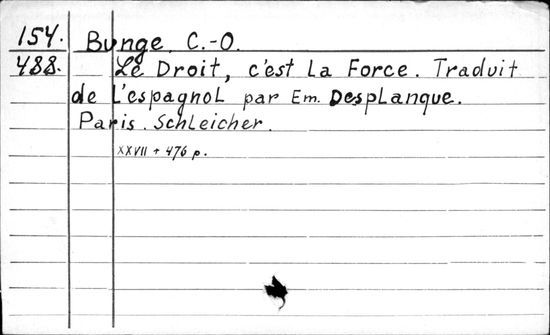 154. Bunge, C.-O.
488. Le Droit, c'est La Force. Traduit
de L'espagnol par Em. Desplanque.
Paris. Schleicher.
XXVII + 476 p.